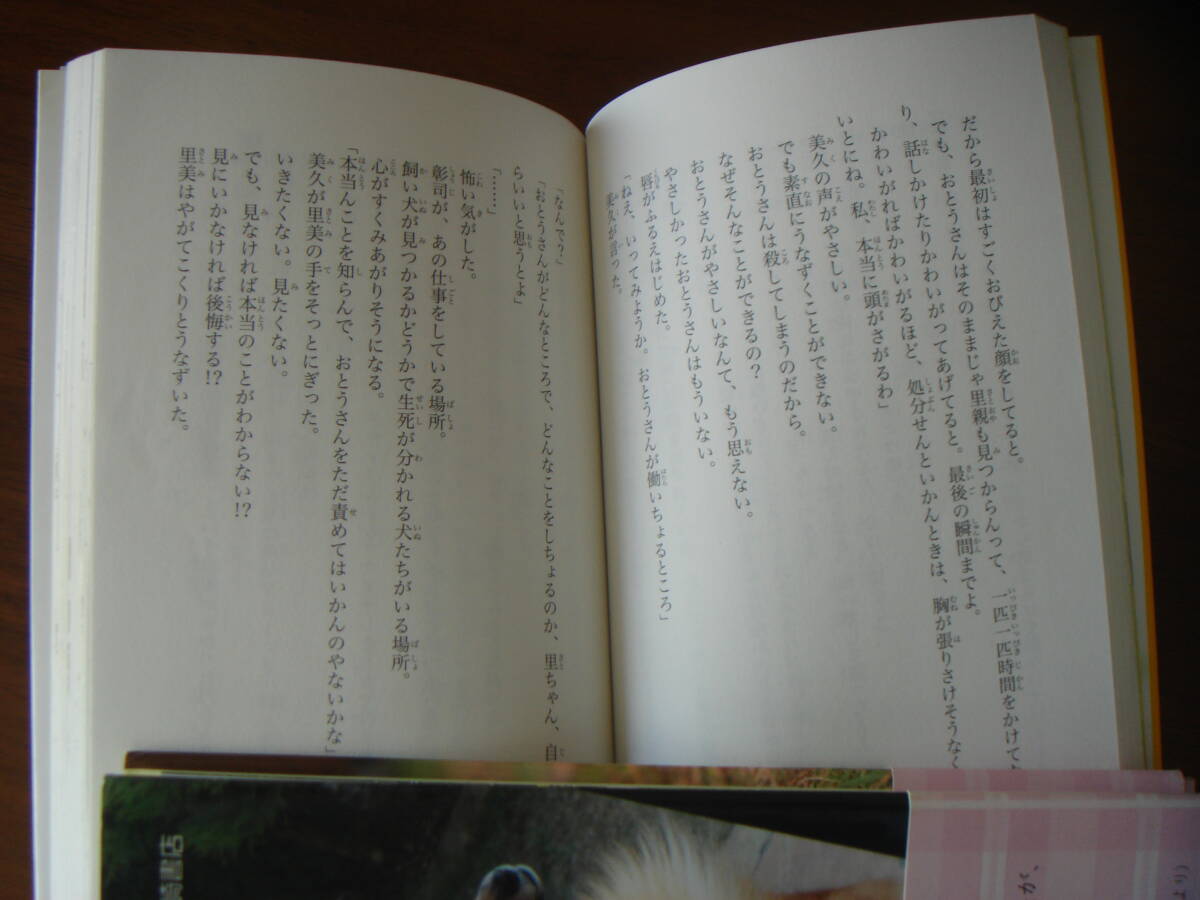 だから最初はすごくおびえた顔をしてると。
でも、おとうさんはそのままじゃ里親も見つからんって、一匹一匹時間をかけて
り、話しかけたりかわいがってあげてると。最後の瞬間までよ。
かわいがればかわいがるほど、処分せんといかんときは、胸が張りさけそうなく
いとにね。私、本当に頭がさがるわ」
美久の声がやさしい。
でも素直にうなずくことができない。
おとうさんは殺してしまうのだから。
なぜそんなことができるの?
おとうさんがやさしいなんて、もう思えない。
やさしかったおとうさんはもういない。
唇がふるえはじめた。
「ねえ、いってみようか。おとうさんが働いちょるところ」
美久が言った。
「なんで?」
「おとうさんがどんなところで、どんなことをしちょるのか、里ちゃん、自
らいいと思うとよ」
「……」
怖い気がした。
彰司が、あの仕事をしている場所。
飼い犬が見つかるかどうかで生死が分かれる犬たちがいる場所。
心がすくみあがりそうになる。
「本当んことを知らんで、おとうさんをただ責めてはいかんのやないかな」
美久が里美の手をそっとにぎった。
いきたくない。見たくない。
でも、見なければ本当のことがわからない!?
見にいかなければ後悔する!?
里美はやがてこくりとうなずいた。
書店
が、
より)